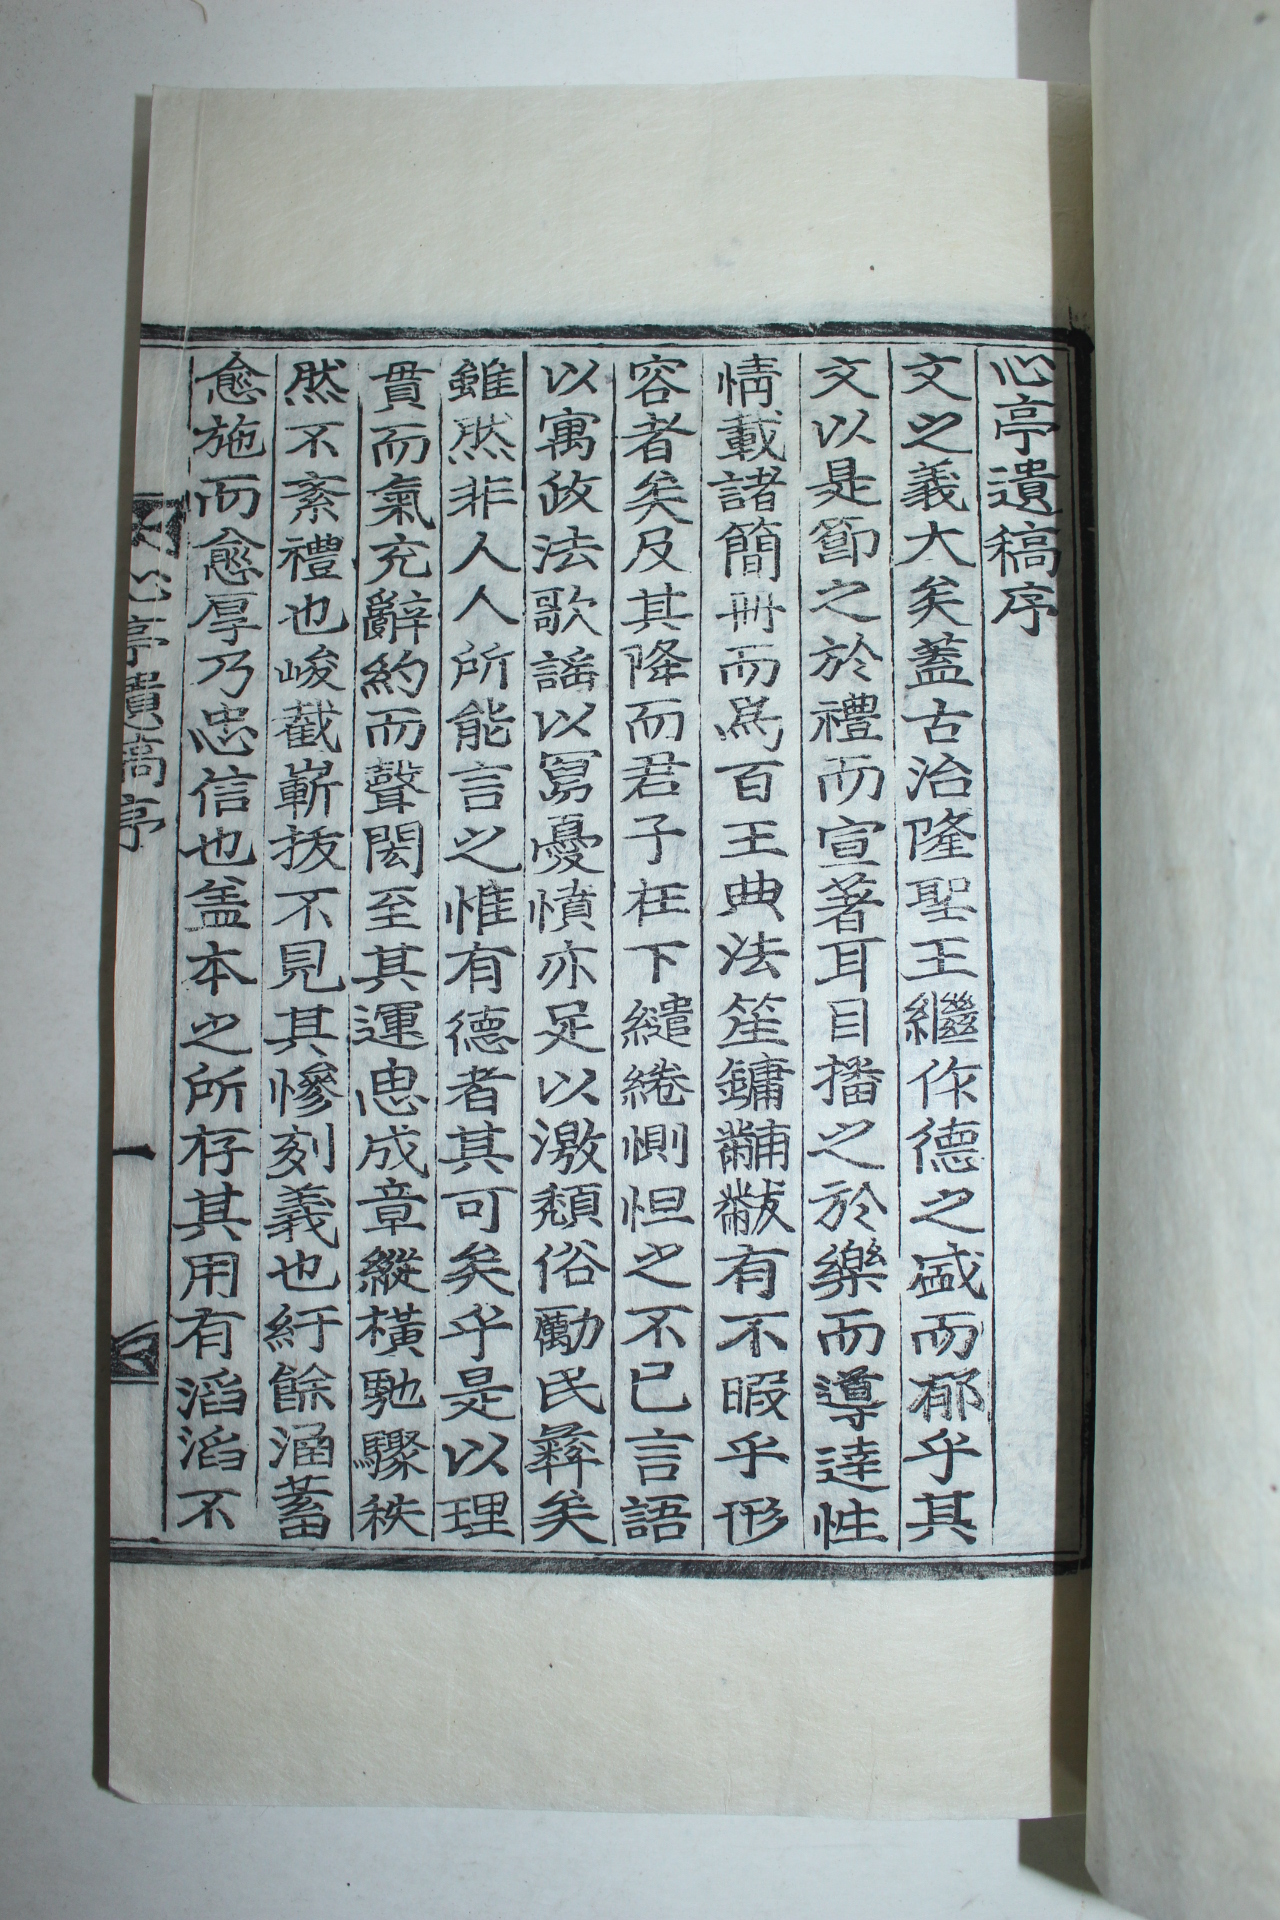 心亭遺稿序
文之義大矣蓋古治隆聖王繼作德之盛而郁乎其
文以是節之於禮而宣著耳目播之於樂而導達性
情載諸簡冊而爲百王典法笙鏞黼黻有不暇乎形
容者矣及其降而君子在下繾綣惻怛之不已言語
以寓政法歌謠以寫憂憤亦足以激頹俗勵民彝矣
雖然非人人所能言之惟有德者其可矣乎是以理
貫而氣充辭約而聲閎至其運思成章縱橫馳驟秩
然不紊禮也峻截嶄拔不見其慘刻義也紆餘涵蓄
愈施而愈厚乃忠信也盖本之所存其用有滔滔不
心亭遺稿序
一